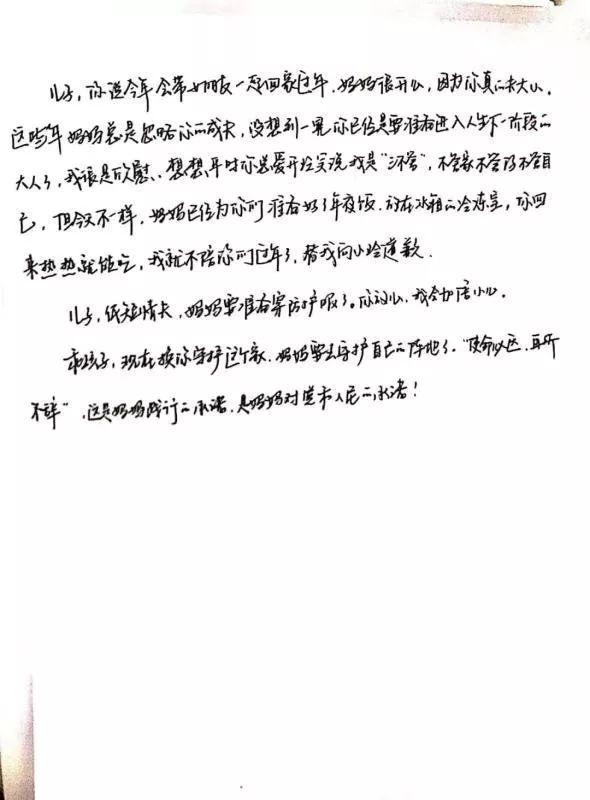 儿子，你说今年会带女朋友一起回家过年，妈妈很开心，因为你真的长大了，
这些年妈妈总是忽略你的成长，没想到一晃你已经是要准备进入人生下一阶段的
大人了，我很是欣慰。想想平时你总爱开玩笑说我是“三不管”，不管家不管你不管自
己，但今天不一样，妈妈已经为你们准备好了年夜饭，放在冰箱的冷冻室，你回
来热热就能吃，我就不陪你们过年了，替我向小玲道歉．
儿子，纸短情长，妈妈要准备穿防护服了。你放心，我会加倍小心．
乖孩子，现在换你守护这个家，妈妈要去守护自己的阵地了．“使命必达，再所
不辞”，这是妈妈践行的承诺，是妈妈对党和人民的承诺！